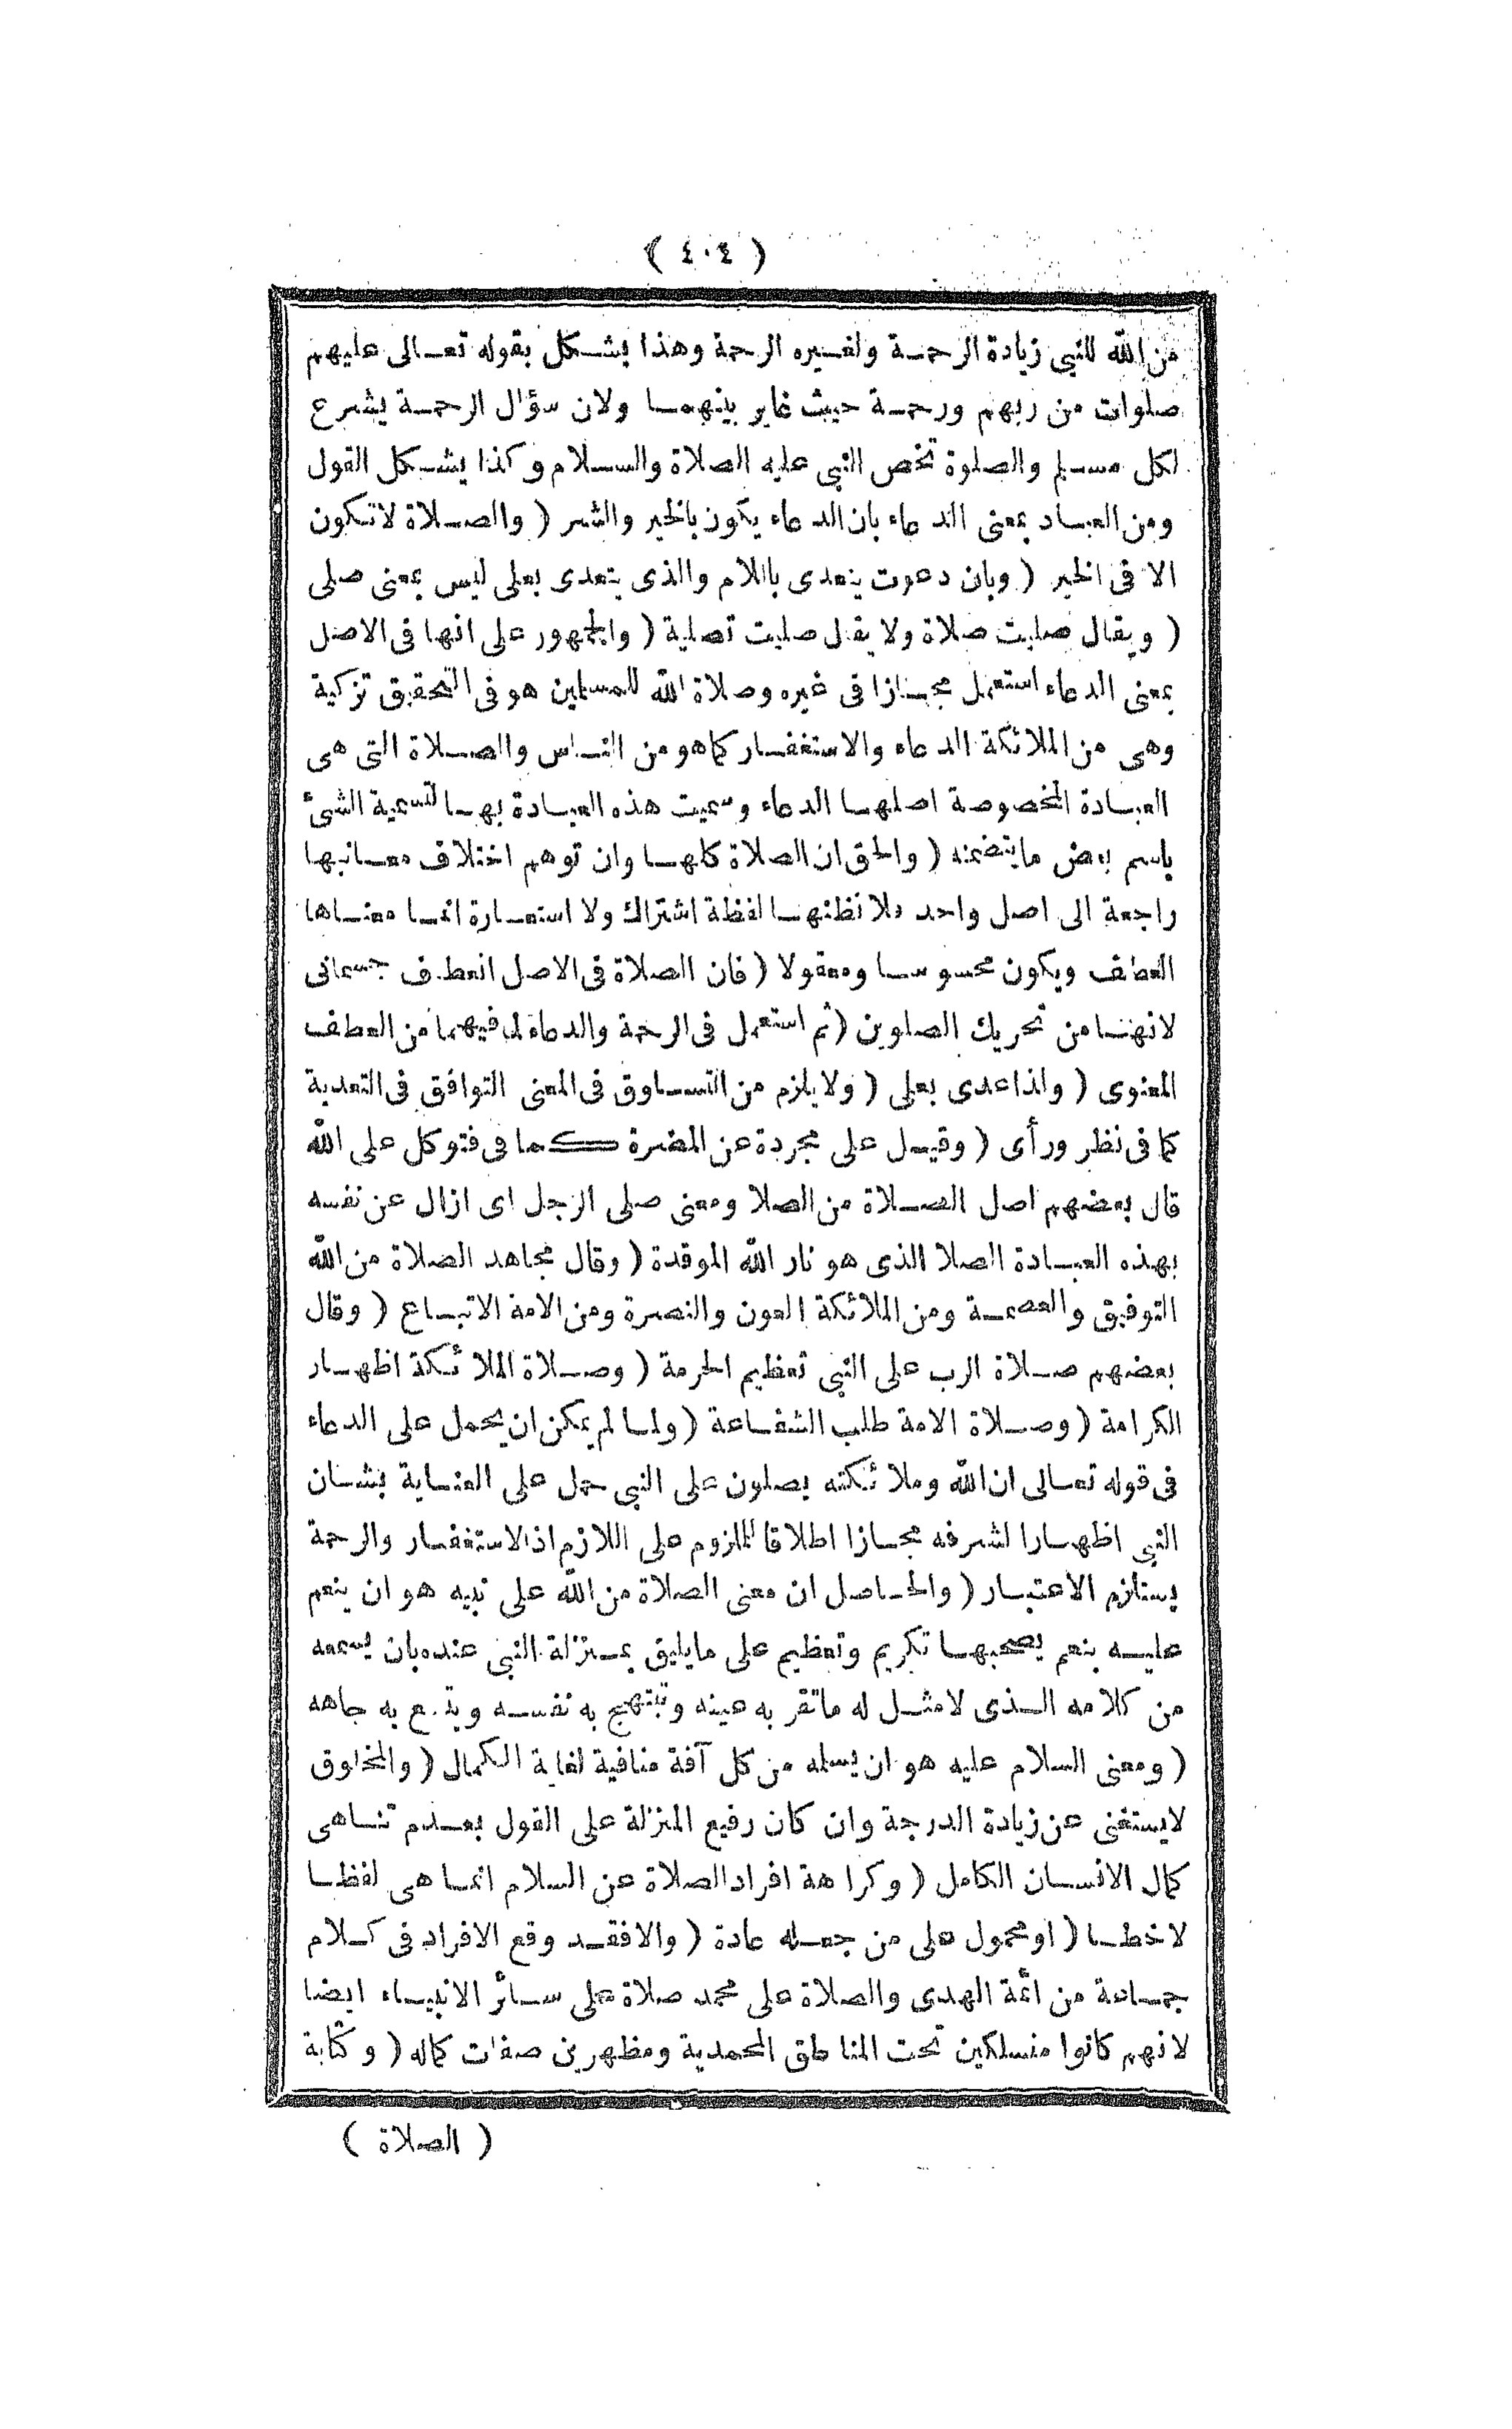 ( ٤٠٤ )
من الله للنبى زيادة الرحمة ولغيره الرحمة وهذا يشكل بقوله تعالى عليهم
صلوات من ربهم ورحمة حيث غاير بينهما ولان سؤال الرحمة يشرع
لكل مسلم والصلوة تخص النبى عليه الصلاة والسلام وكذا يشكل القول
ومن العباد بمعنى الدعاء بان الدعاء يكون بالخير والشر ( والصلاة لاتكون
الا فى الخير ( وبان دعوت يتعدى باللام والذى يتعدى بعلى ليس بمعنى صلى
( ويقال صليت صلاة ولا يقل صليت تصلية ( والجمهور على انها فى الاصل
بمعنى الدعاء استعمل مجازا فى غيره وصلاة الله للمسلمين هو فى التحقيق تزكية
وهى من الملائكة الدعاء والاستغفار كماهو من الناس والصلاة التى هى
العبادة المخصوصة اصلها الدعاء وسميت هذه العبادة بها لتسمية الشئ
باسم بعض مايتضمنه ( والحق ان الصلاة كلها وان توهم اختلاف معانيها
راجعة الى اصل واحد فلا تظنها لفظة اشتراك ولا استعارة انما معناها
العطف ويكون محسوسا ومعقولا ( فان الصلاة فى الاصل انعطاف جسمانى
لانها من تحريك الصلوين ( ثم استعمل فى الرحمة والدعاء لما فيهما من العطف
المعنوى ( ولذا عدى بعلى ( ولا يلزم من التساوق فى المعنى التوافق فى التعدية
كما فى نظر ورأى ( وقيل على مجردة عن المضرة كما فى فتوكل على الله
قال بعضهم اصل الصلاة من الصلا ومعنى صلى الرجل اى ازال عن نفسه
بهذه العبادة الصلا الذى هو نار الله الموقدة ( وقال مجاهد الصلاة من الله
التوفيق والعصمة ومن الملائكة العون والنصرة ومن الامة الاتباع ( وقال
بعضهم صلاة الرب على النبى تعظيم الحرمة ( وصلاة الملائكة اظهار
الكرامة ( وصلاة الامة طلب الشفاعة ( ولما لم يمكن ان يحمل على الدعاء
فى قوله تعالى ان الله وملائكته يصلون على النبى حمل على العناية بشان
النبى اظهارا لشرفه مجازا اطلاقا للملزوم على اللازم اذ الاستغفار والرحمة
يستلزم الاعتبار ( والحاصل ان معنى الصلاة من الله على نبيه هو ان ينعم
عليه بنعم يصحبها تكريم وتعظيم على مايليق بمنزلة النبى عنده بان يسمعه
من كلامه الذى لامثل له ماتقر به عينه وتبتهج به نفسه ويتسع به جاهه
( ومعنى السلام عليه هو ان يسلمه من كل آفة منافية لغاية الكمال ( والمخلوق
لايستغنى عن زيادة الدرجة وان كان رفيع المنزلة على القول بعدم تناهى
كمال الانسان الكامل ( وكراهة افراد الصلاة عن السلام انما هى لفظا
لاخطا ( او محمول على من جعله عادة ( والا فقد وقع الافراد فى كلام
جماعة من ائمة الهدى والصلاة على محمد صلاة على سائر الانبياء ايضا
لانهم كانوا منسلكين تحت المناطق المحمدية ومظهرين صفات كماله ( وكتابة
( الصلاة )